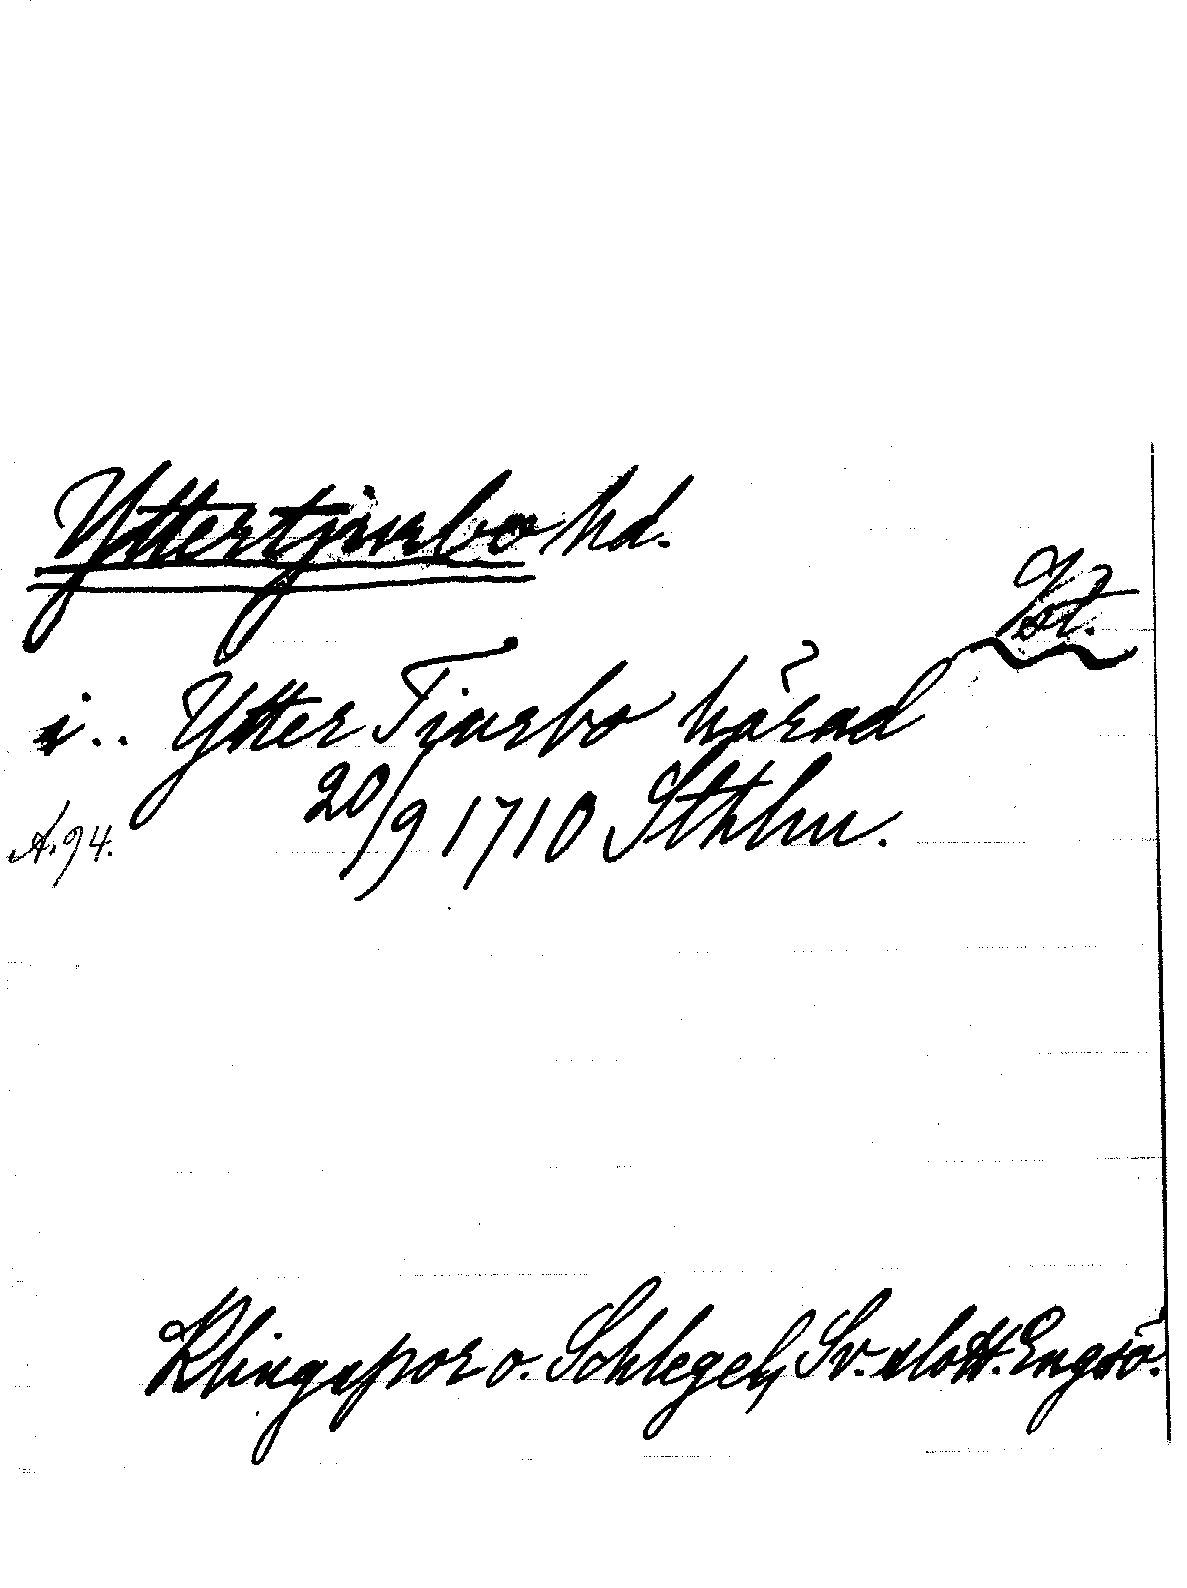 Yttertjurbo hd.
Vst.
i.. Ytter Tiurbo härad
20/9 1710 Sthlm.
A.94.
Klingspor o. Schlegel, Sv. slott. Engsö.